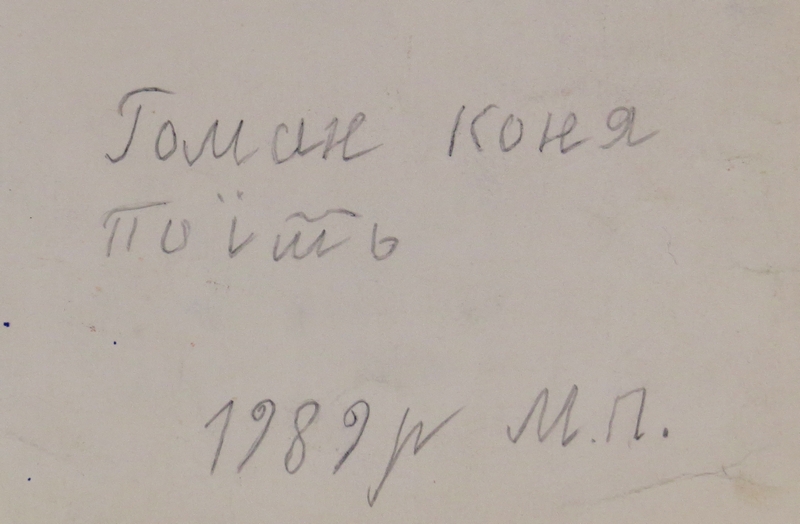 Гоман коня
поїть
1989р М.П.